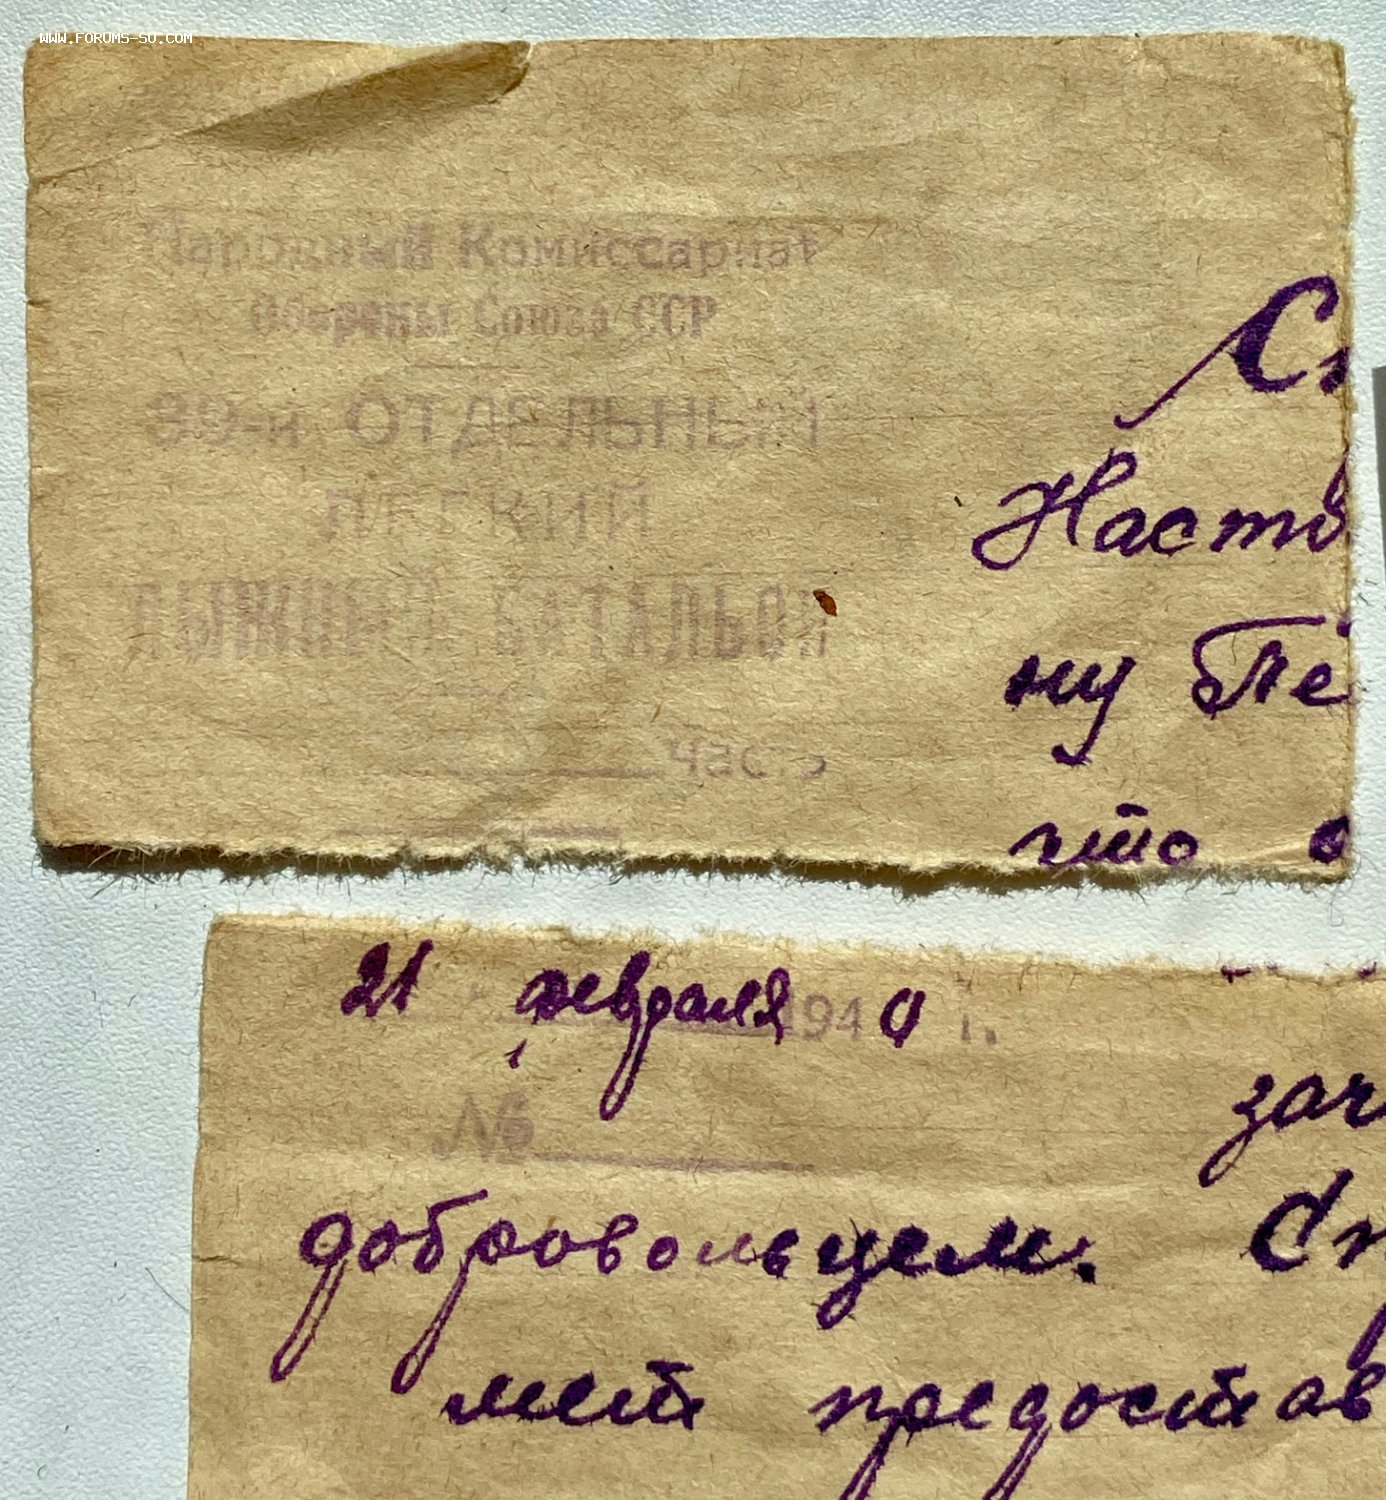 WWW.FORUMS-SU.COM
Народный Комиссариат
Обороны Союза ССР
89-й ОТДЕЛЬНЫЙ
ЛЕГКИЙ
ЛЫЖНЫЙ БАТАЛЬОН
часть
Сп
Насто
ну Пе
что о
21 февраля 1940 г.
№
зач
добровольцем. Сп
мест предостав